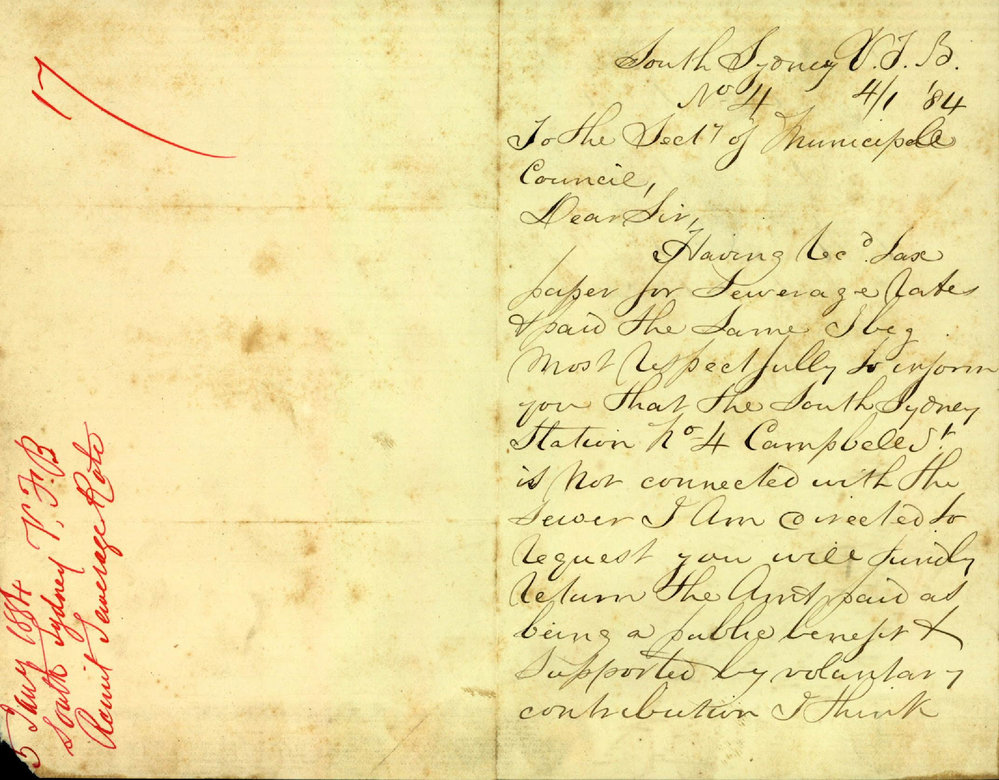 17
5 Jany 1884
South Sydney V. F. B
Remit Sewerage Rate
South Sydney V. F. B.
No 4 4/1 '84
To the Secty of Municipale
Council,
Dear Sir,
Having Recd. Tax
paper for Sewerage Rates
& paid the Same I beg
Most Respectfully to inform
you that the South Sydney
Station No 4 Campbell St.
is Not connected with the
Sewer I Am directed to
Request you will kindly
Return the Amt paid as
being a public benefit &
Supported by voluntary
contribution I think